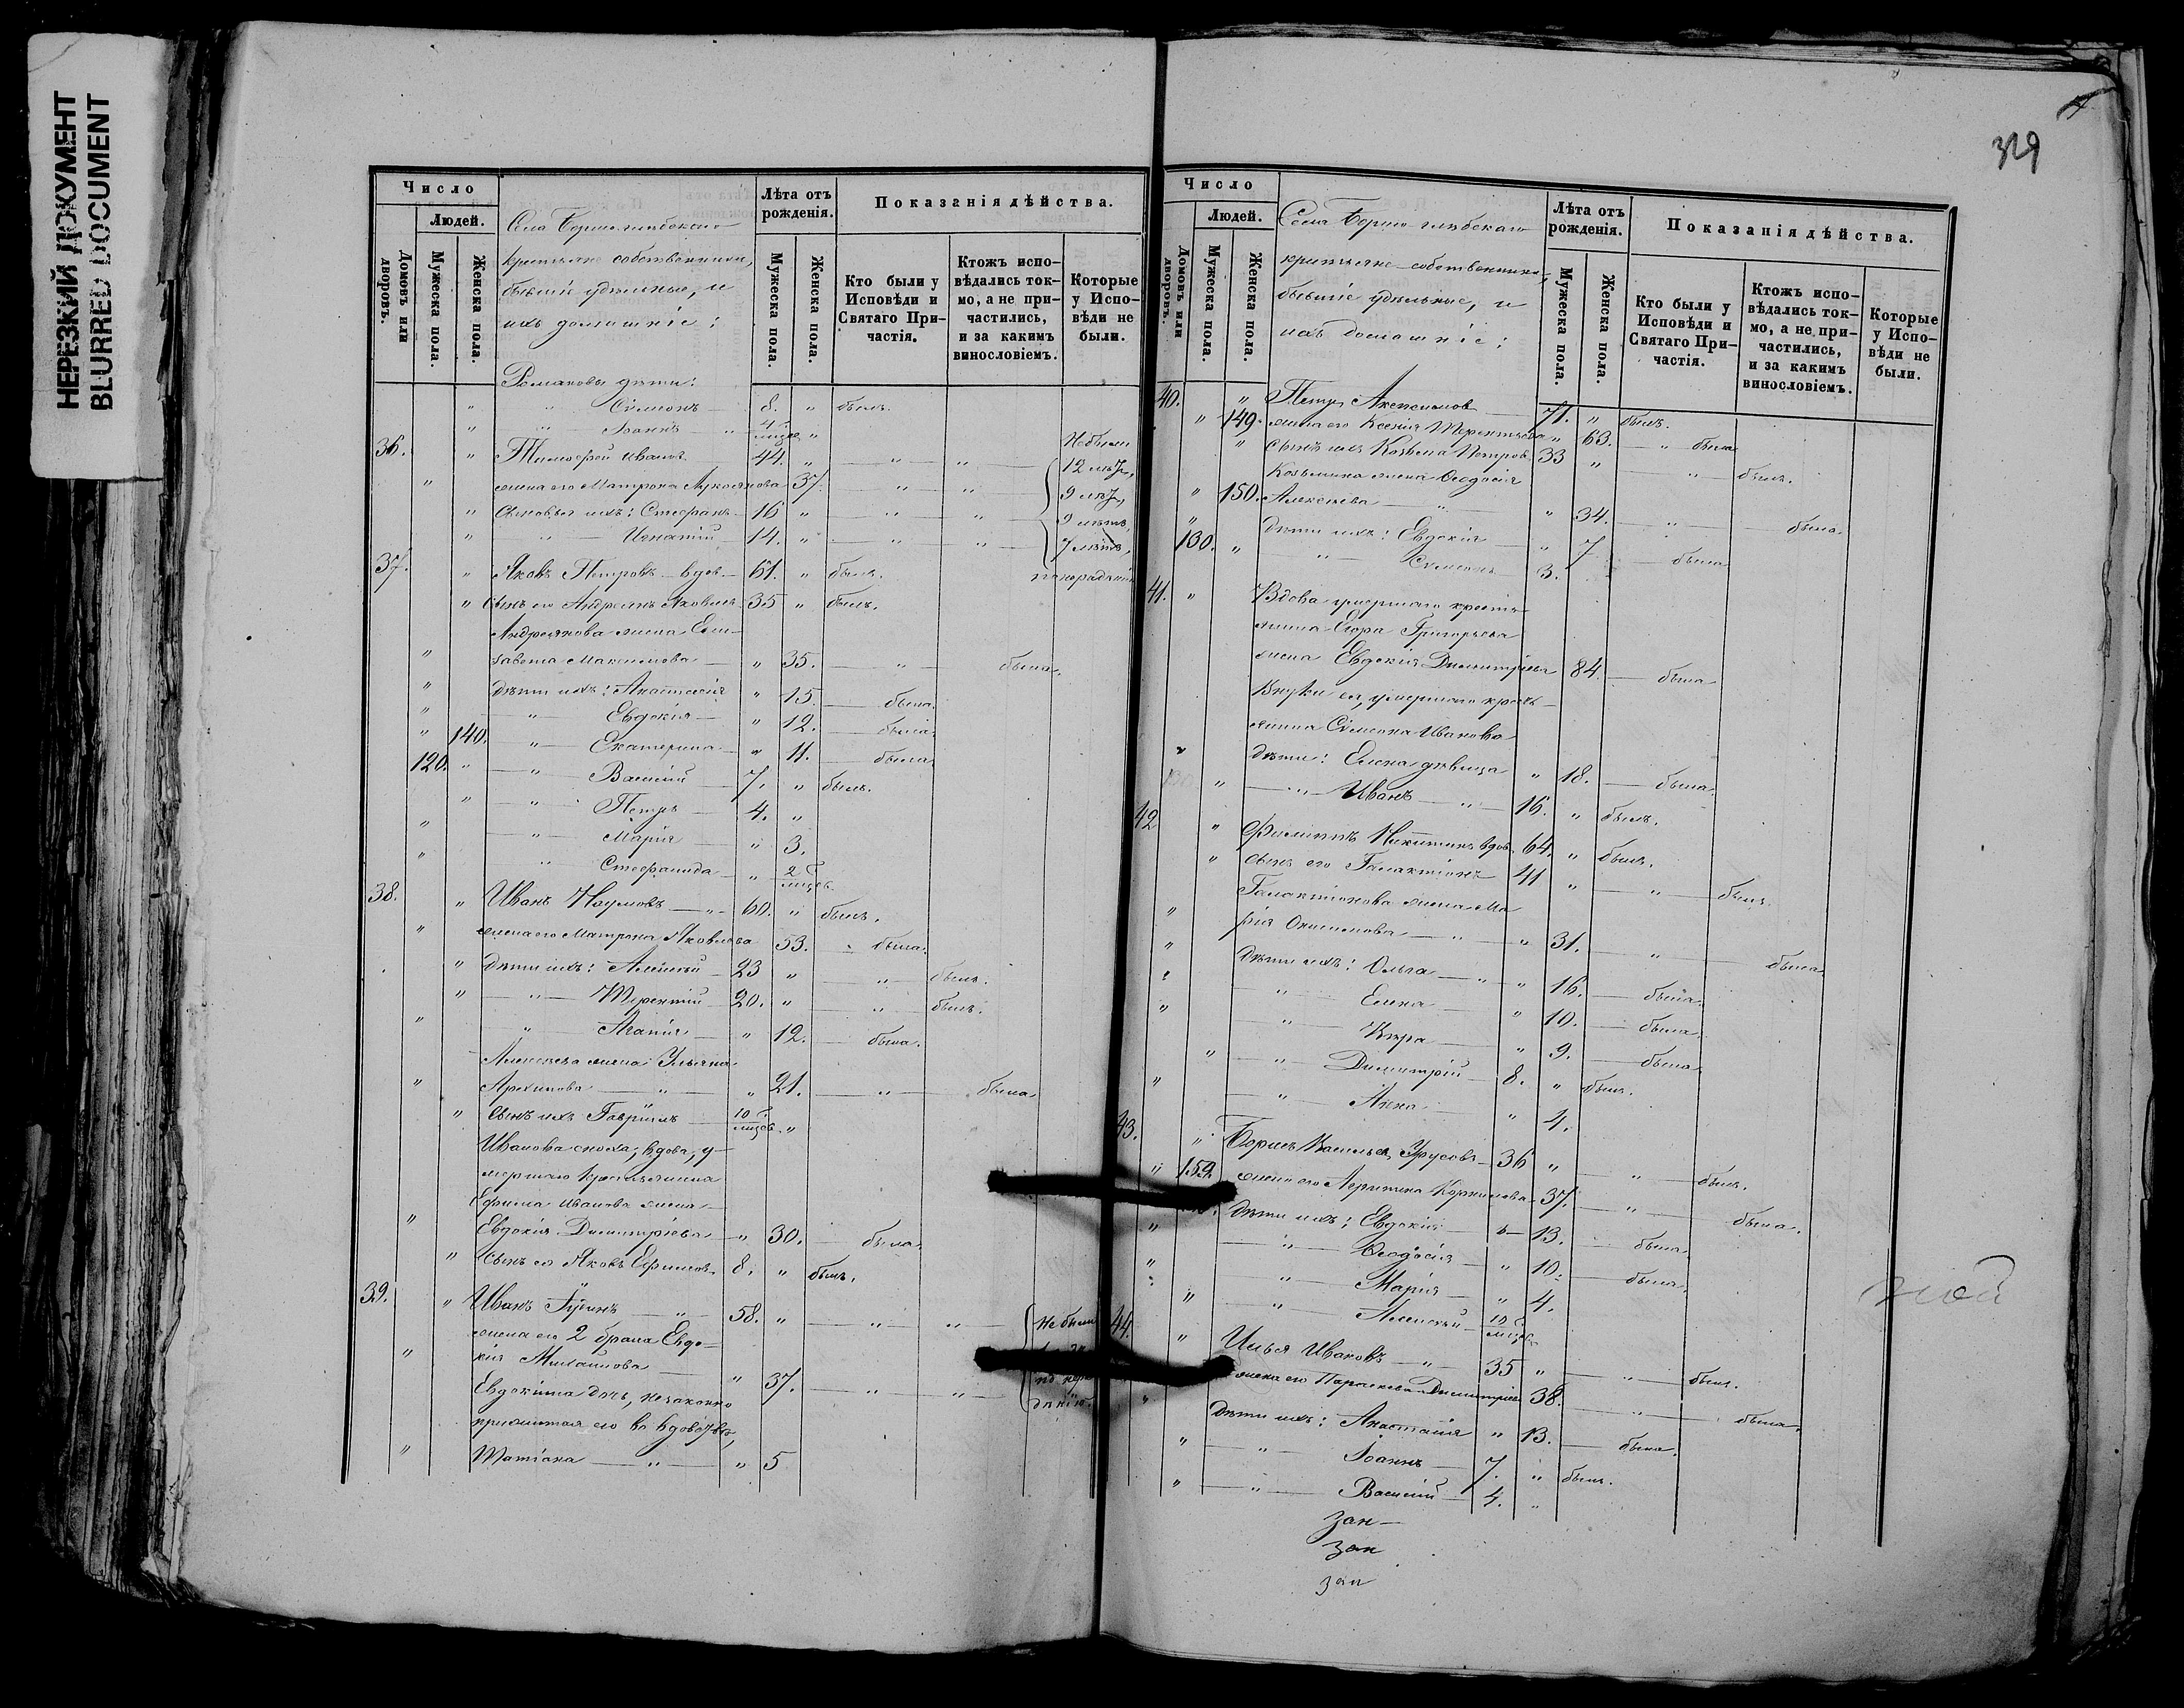 НЕРЕЗКИЙ ДОКУМЕНТ
BLURRED DOCUMENT
Число
Людей.
Домовъ или дворовъ.
Мужеска пола.
Женска пола.
Села Борисоглѣбскаго
крестьяне собственники,
бывшіе удѣльные, и
ихъ домашніе:
Лѣта отъ рожденія.
Мужеска пола.
Женска пола.
Показанія дѣйства.
Кто были у Исповѣди и Святаго Причастія.
Ктожъ исповѣдались токмо, а не причастились, и за какимъ винословіемъ.
Которые у Исповѣди не были.
Романовы дѣти:
" " Сѵмеонъ 8. " былъ.
" " Іоаннъ " 4 мцев "
36. " Тимофей Иванов 44. " " " Не были 12 лѣт,
" жена его Матрона Лукоянова 37. " " 9 лѣт,
" Сыновья ихъ: Стефанъ 16 " " " 9 лѣтъ
" " Игнатій 14. " " " 7 лѣтъ,
37. " Яковъ Петровъ вдов. 61. " былъ. по нерадѣнію
" Сынъ его Андреянъ Яковлев 35 " былъ.
Андреянова жена Ели-
" завета Максимова " 35. " была.
" Дѣти ихъ: Анастасія " 15. была.
" " Евдокія " 12. была.
" 140. " Екатерина " 11. была
120. " " Василій 7. " былъ.
" " Петръ 4. "
" " Марія " 3.
" " Стефанида " 2 мцев
38. " Иванъ Наумовъ " 60. " былъ.
" жена его Матрона Яковлева 53. " была.
" Дѣти ихъ: Алексѣй 23 " " былъ.
" " Терентій 20. " " былъ.
" " Агапія " 12. была.
Алексѣева жена Ульяна
" Архипова " " 21. " была
" Сынъ ихъ Гавріилъ 10 мцев "
Иванова сноха, вдова, у-
мершаго крестьянина
Ефима Иванова жена
" Евдокія Димитріева " 30. была.
" Сынъ ея Яковъ Ефимов 8. " былъ.
39. " Иванъ " 58. " " " Не были
жена его 2 брака Евдо-
" кія Михайлова " 37. " " по нерадѣнію.
Евдокіина дочь, незаконно
прижитая ею во вдовствѣ,
" Татіана " " 5
329
Число
Людей.
Домовъ или дворовъ.
Мужеска пола.
Женска пола.
Села Борисоглѣбскаго
крестьяне собственники,
бывшіе удѣльные, и
ихъ домашніе:
Лѣта отъ рожденія.
Мужеска пола.
Женска пола.
Показанія дѣйства.
Кто были у Исповѣди и Святаго Причастія.
Ктожъ исповѣдались токмо, а не причастились, и за какимъ винословіемъ.
Которые у Исповѣди не были.
40. " Петръ 71. " былъ.
" 149. жена его Ксенія Терентьева " 63. " была
" Сынъ ихъ Козьма Петров 33 " " былъ.
Козьмина жена Ѳеодосія
" 150. Алексѣева " " 34. " была.
" Дѣти ихъ: Евдокія " 7 была
130. " " Сѵмеонъ 3.
41. " Вдова умершаго кресть-
янина Егора Григорьева
жена Евдокія Димитріева 84. была
Внуки ея, умершаго кресть-
янина Сѵмеона Иванова
" дѣти: Елена дѣвица " 18. была.
" " Иванъ " 16. " былъ.
42 " Филиппъ Никитинъ вдов. 64. " былъ.
" Сынъ его Галактіонъ 41 " " былъ.
Галактіонова жена Ма
" рія Онисимова " " 31. " была
" Дѣти ихъ: Ольга " " 16. была.
" " Елена " 10. была.
" " Вѣра " 9. была
" " Димитрій 8. " былъ.
" " Анна " 4.
43. " Борисъ Васильев Урусовъ 36 " " былъ.
" 159. жена его Корнилова 37. " была.
" Дѣти ихъ: Евдокія " 13. была.
" " Ѳеодосія " 10. была.
" " Марія " 4.
" " Алексѣй 10 мцев
44. " Илья Ивановъ " 35. " " былъ.
" жена его Параскева Димитріева 38. " была.
Дѣти ихъ: Анастасія " 13. была.
" " Іоаннъ 7. " былъ.
" " Василій 4. "
зан
зан
зан